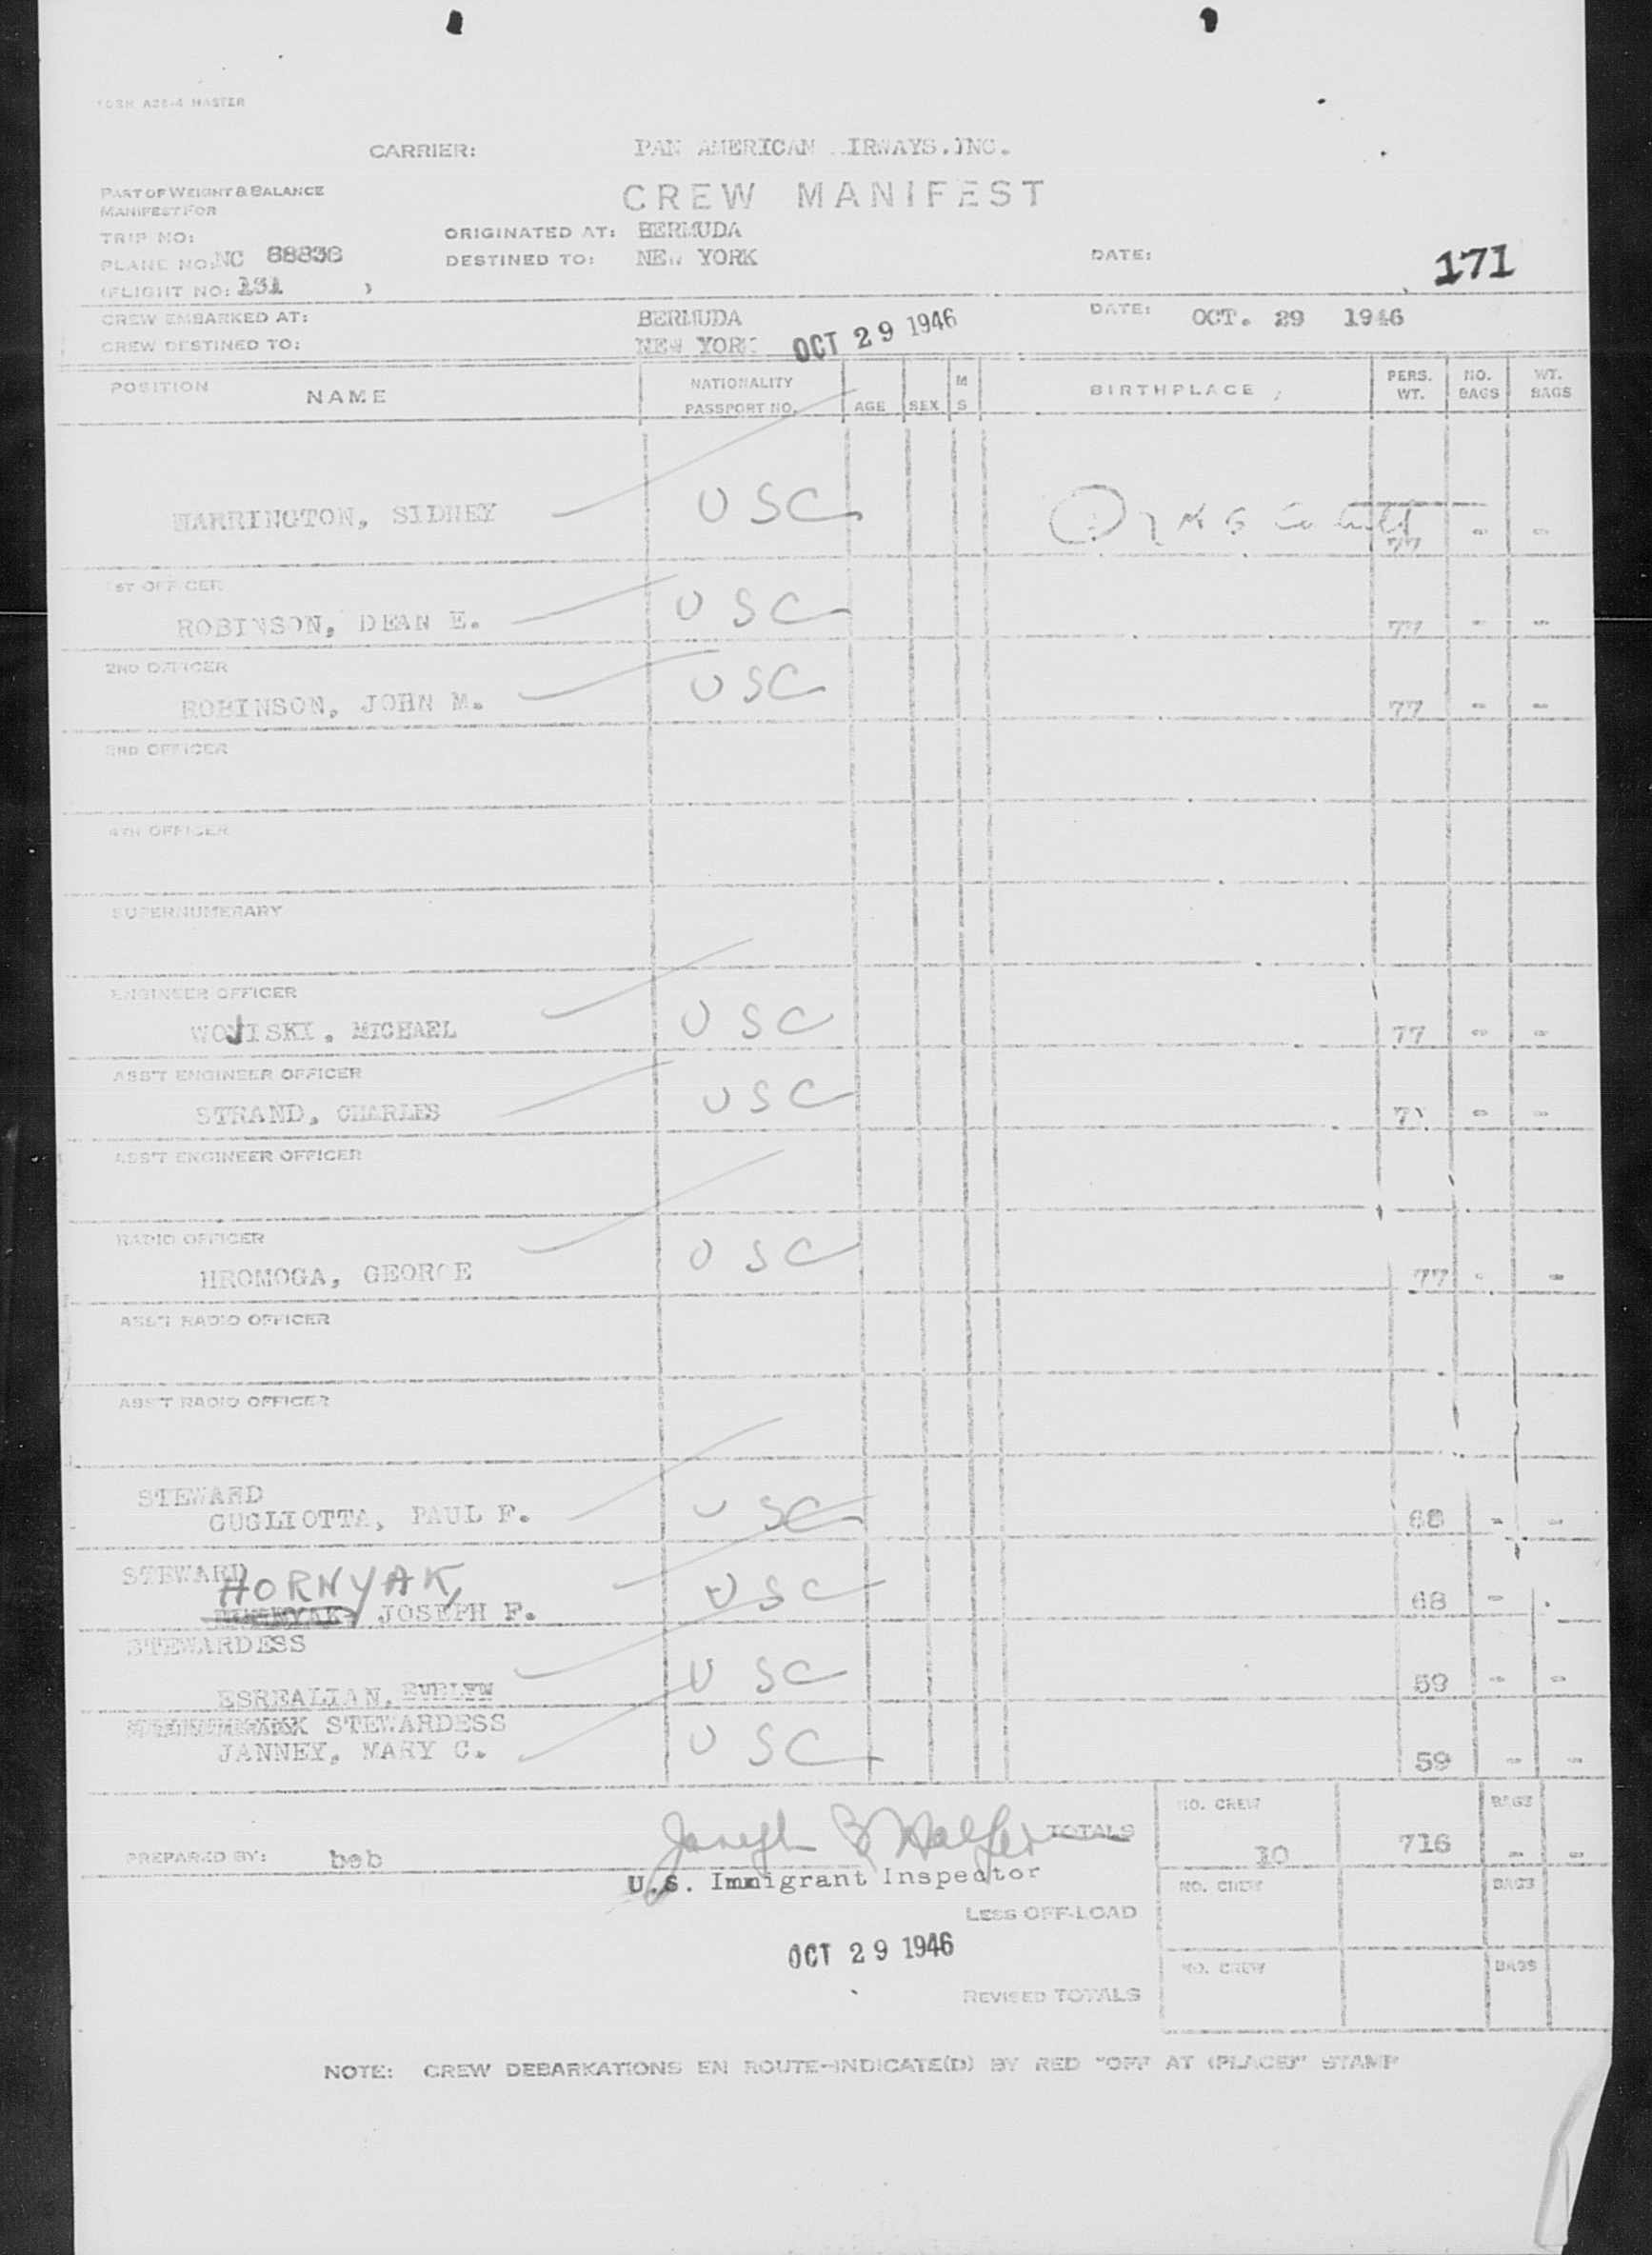 FORM A26-4 MASTER
CARRIER: PAN AMERICAN IRWAYS.INC.
PART OF WEIGHT & BALANCE
MANIFEST FOR
CREW MANIFEST
TRIP NO:
ORIGINATED AT: BERMUDA
PLANE NO: NC 88838
DESTINED TO: NEW YORK
DATE:
171
(FLIGHT NO: 131 )
CREW EMBARKED AT: BERMUDA
DATE: OCT. 29 1946
CREW DESTINED TO: NEW YORK OCT 29 1946
POSITION NAME NATIONALITY PASSPORT NO. AGE SEX M S BIRTHPLACE PERS. WT. NO. BAGS WT. BAGS
HARRINGTON, SIDNEY USC 77 - -
1ST OFFICER
ROBINSON, DEAN E. USC 77 - -
2ND OFFICER
ROBINSON, JOHN M. USC 77 - -
3RD OFFICER
4TH OFFICER
SUPERNUMERARY
ENGINEER OFFICER
WOJISKI, MICHAEL USC 77 - -
ASS'T ENGINEER OFFICER
STRAND, CHARLES USC - -
ASS'T ENGINEER OFFICER
RADIO OFFICER
HROMOGA, GEORGE USC 77 - -
ASS'T RADIO OFFICER
ASS'T RADIO OFFICER
STEWARD
GUGLIOTTA, PAUL F. USC 68 - -
STEWARD
HORNYAK, JOSEPH F. USC 68 -
STEWARDESS
ESREALIAN, EVELYN USC 59 - -
STEWARDESS
JANNEY, MARY C. USC 59 - -
NO. CREW BAGS
Joseph B Walfer TOTALS 10 716 - -
PREPARED BY: beb
U.S. Immigrant Inspector
NO. CREW BAGS
LESS OFF-LOAD
OCT 29 1946
NO. CREW BAGS
REVISED TOTALS
NOTE: CREW DEBARKATIONS EN ROUTE-INDICATE(D) BY RED "OFF AT (PLACE)" STAMP